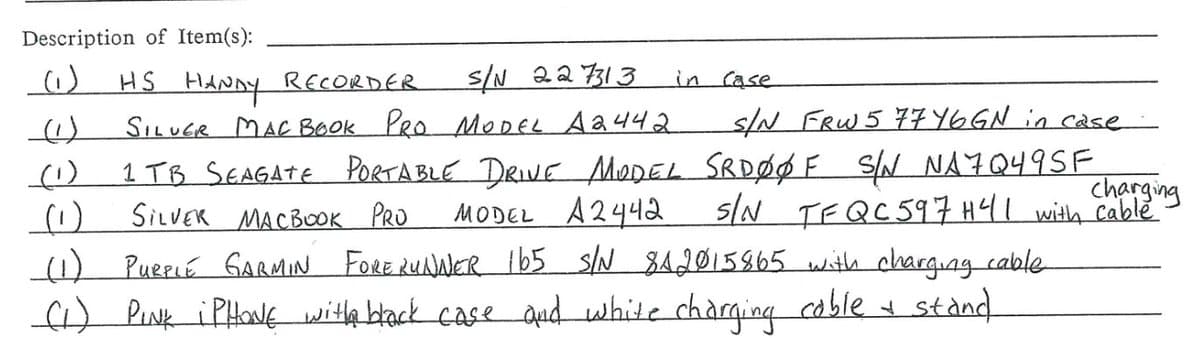 Description of Item(s):
(1) HS HANDY RECORDER S/N 227313 in case
(1) SILVER MACBOOK PRO MODEL A2442 S/N FRW577Y6GN in case
(1) 1 TB SEAGATE PORTABLE DRIVE MODEL SRDØØF S/N NA7Q49SF
(1) SILVER MACBOOK PRO MODEL A2442 S/N TFQC597H41 with charging cable
(1) PURPLE GARMIN FORERUNNER 165 S/N 8A2Ø15865 with charging cable
(1) PINK iPHONE with black case and white charging cable & stand